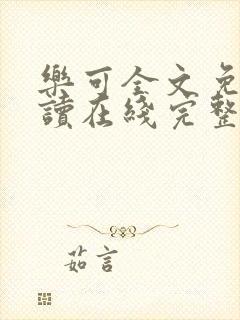 樂可全文免
讀在綫完整
茹言